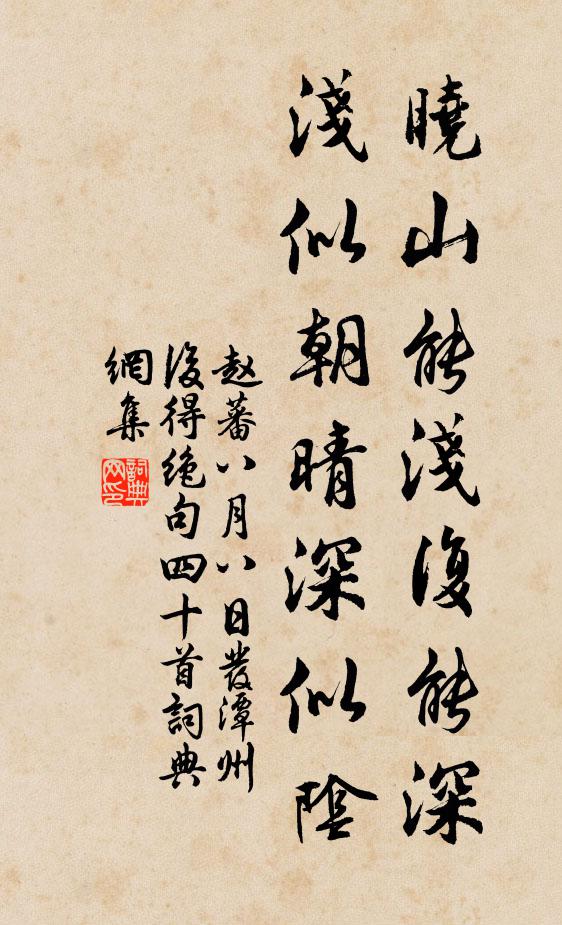 曉山能淺復能深
淺似朝晴深似陰
赵蕃八月八日發潭州
後得絶句四十首詞典
網集
詞典
网印